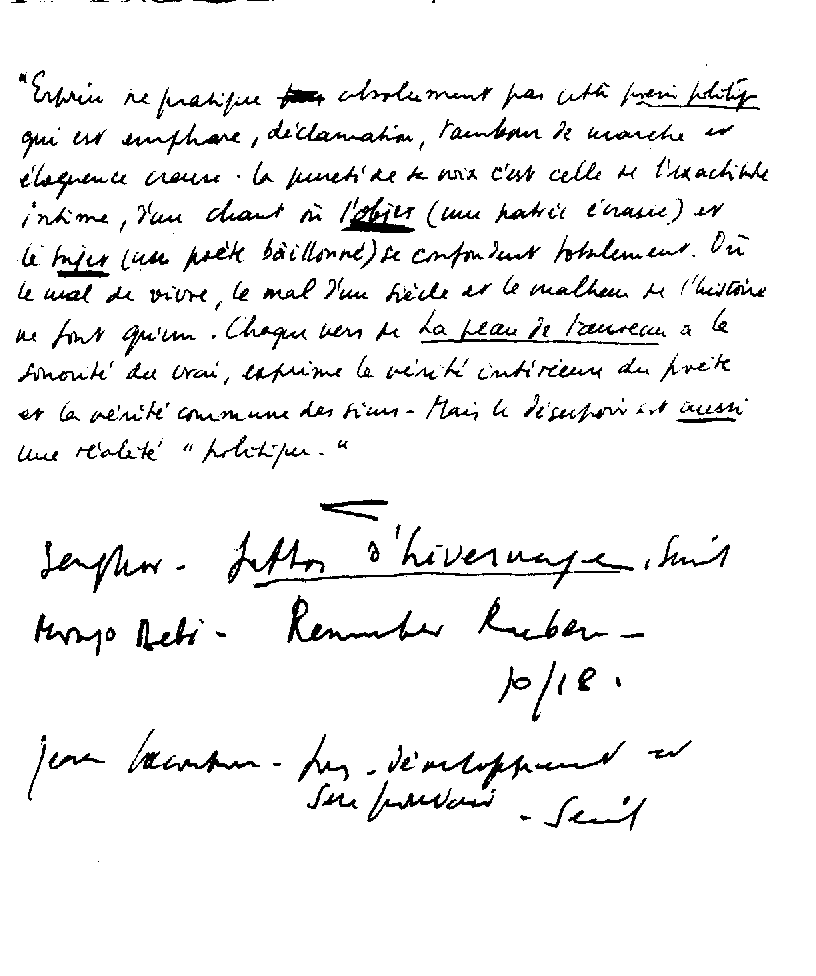 "Espriu ne pratique absolument pas cette poésie politiq
qui est emphase, déclamation, tambour de marche et
éloquence creuse. La pureté de sa voix c'est celle de l'exactitude
intime, d'un chant où l'objet (une patrie écrasée) et
le sujet (un poète bâillonné) se confondent totalement. Où
le mal de vivre, le mal d'un siècle et le malheur de l'histoire
ne font qu'un. Chaque vers de La peau de taureau a la
sonorité du vrai, exprime la vérité intérieure du poète
et la vérité commune des siens - Mais le désespoir est aussi
une réalité "politique."
Senghor - Lettres d'hivernage, Seuil
Mongo Beti - Remember Ruben -
10/18.
Jean - développement et
Seuil